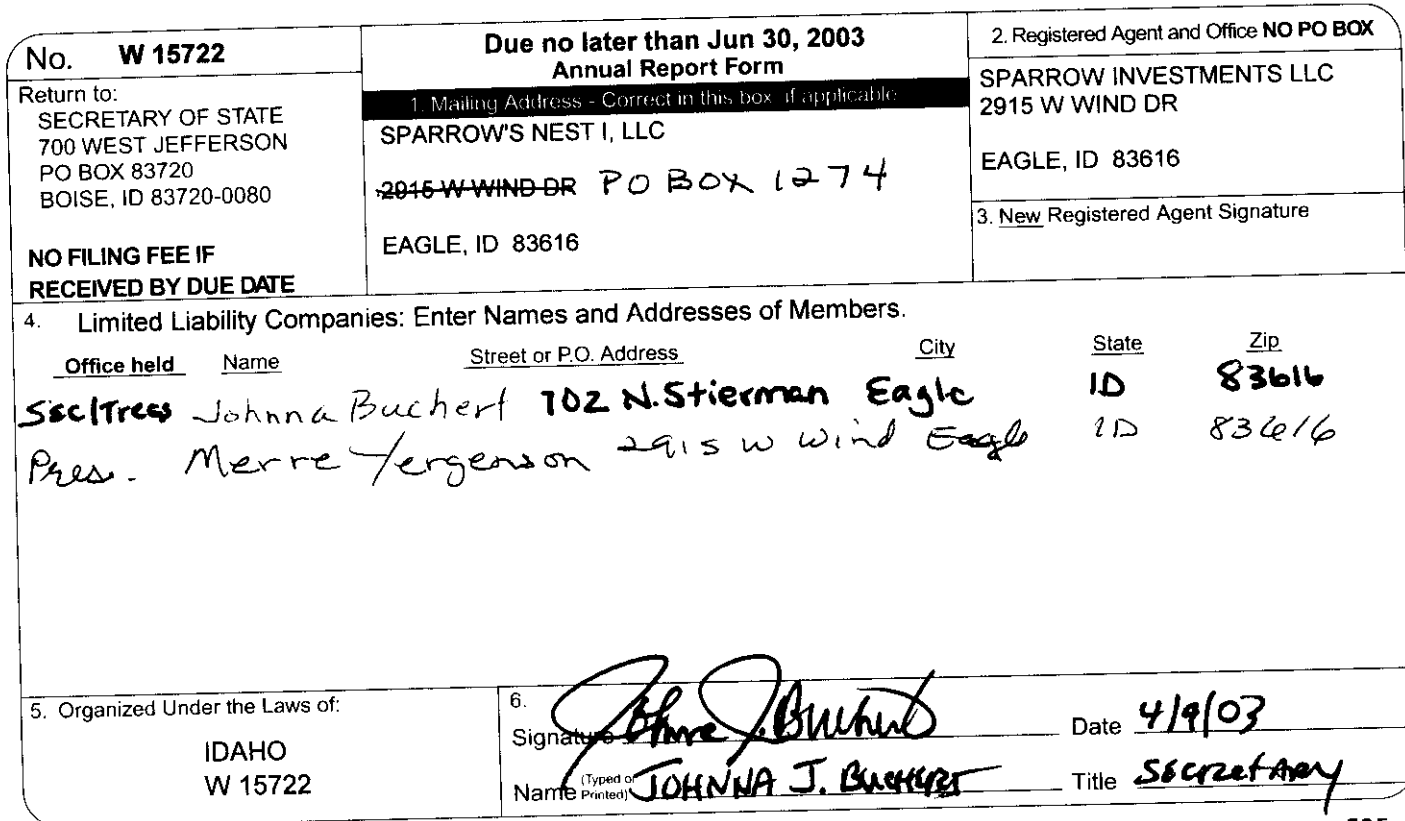 No. W 15722
Return to:
SECRETARY OF STATE
700 WEST JEFFERSON
PO BOX 83720
BOISE, ID 83720-0080
NO FILING FEE IF
RECEIVED BY DUE DATE
Due no later than Jun 30, 2003
Annual Report Form
1. Mailing Address - Correct in this box if applicable
SPARROW'S NEST I, LLC
2915 W WIND DR PO BOX 1274
EAGLE, ID 83616
2. Registered Agent and Office NO PO BOX
SPARROW INVESTMENTS LLC
2915 W WIND DR
EAGLE, ID 83616
3. New Registered Agent Signature
4. Limited Liability Companies: Enter Names and Addresses of Members.
Office held Name Street or P.O. Address City State Zip
Sec/Treas Johnna Buchert 702 N. Stierman Eagle ID 83616
Pres. Merre Yergenson 2915 W Wind Eagle ID 83616
5. Organized Under the Laws of:
IDAHO
W 15722
6.
Signature Johnna J. Buchert Date 4/9/03
Name (Typed or Printed) JOHNNA J. BUCHERT Title Secretary